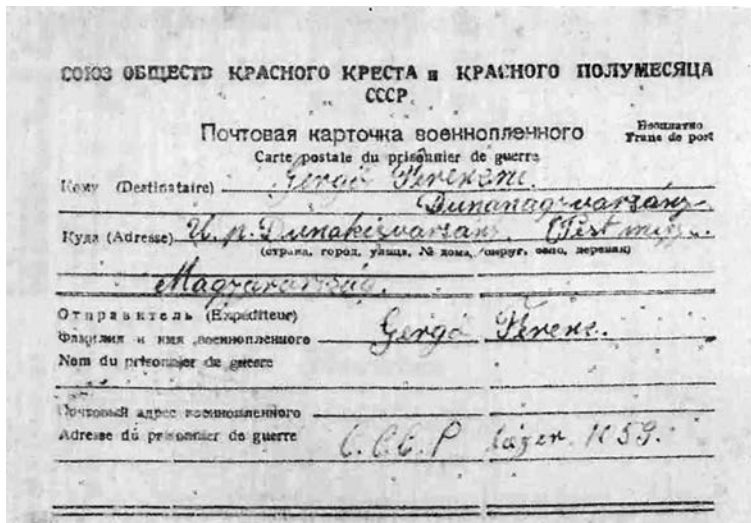 СОЮЗ ОБЩЕСТВ КРАСНОГО КРЕСТА и КРАСНОГО ПОЛУМЕСЯЦА
СССР
Почтовая карточка военнопленного
Бесплатно
Franc de port
Carte postale du prisonnier de guerre
Кому (Destinataire) Gergó Ferencné
Dunanagyvarsány
Куда (Adresse) U. p. Dunakisvarsány (Pest
(страна, город, улица, № дома, округ, село, деревня)
Magyarország.
Отправитель (Expéditeur)
Фамилия и имя военнопленного Gergó Ferenc.
Nom du prisonnier de guerre
Почтовый адрес военнопленного
Adresse du prisonnier de guerre C.C.C.P láger